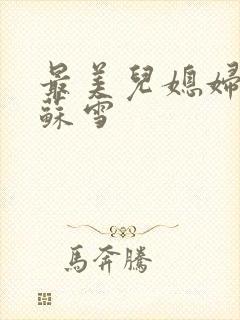 最美兒媳婦
蘇雪
馬奔騰